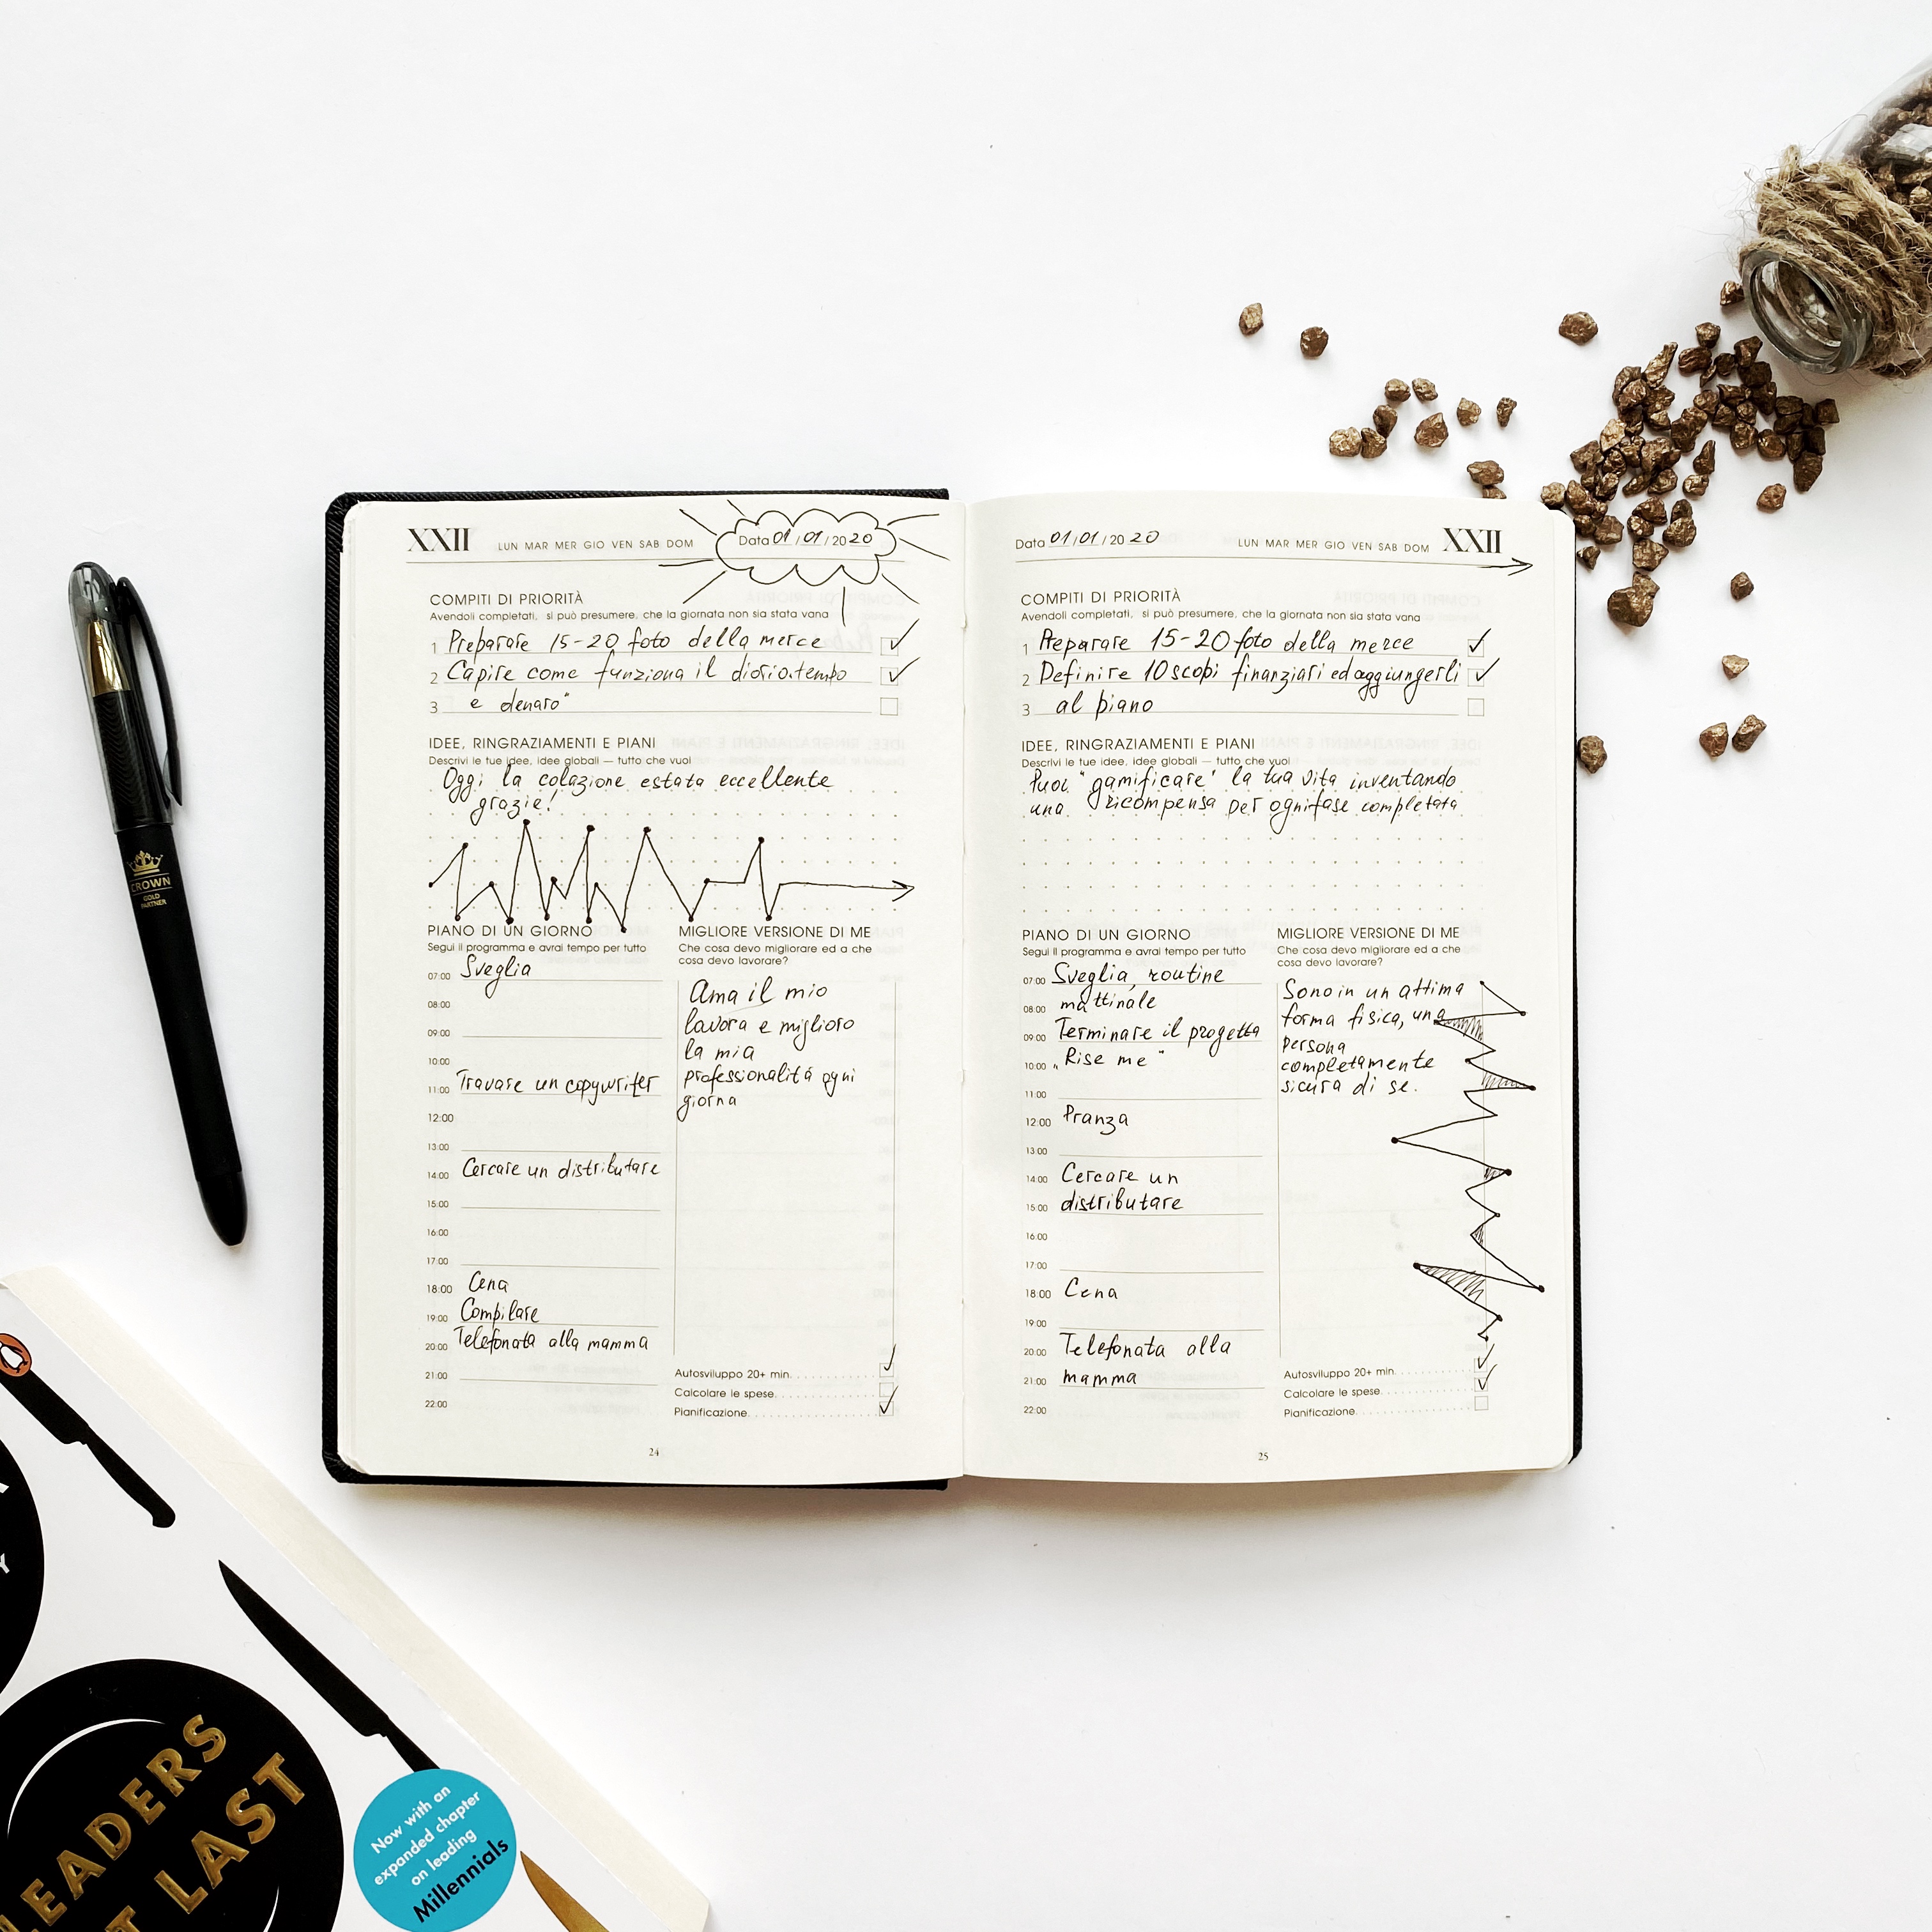 XXII LUN MAR MER GIO VEN SAB DOM Data 01/01/2020
COMPITI DI PRIORITÀ
Avendoli completati, si può presumere, che la giornata non sia stata vana
1 Preparare 15-20 foto della merce
2 Capire come funziona il diario.tempo
3 e denaro"
IDEE, RINGRAZIAMENTI E PIANI
Descrivi le tue idee, idee globali — tutto che vuoi
Oggi la colazione estata eccellente
grazie!
PIANO DI UN GIORNO
Segui il programma e avrai tempo per tutto
07:00 Sveglia
08:00
09:00
10:00
11:00 Travare un copywriter
12:00
13:00
14:00 Cercare un distributare
15:00
16:00
17:00
18:00 Cena
19:00 Compilare
20:00 Telefonata alla mamma
21:00
22:00
MIGLIORE VERSIONE DI ME
Che cosa devo migliorare ed a che
cosa devo lavorare?
Ama il mio
lavora e miglioro
la mia
professionalitá ogni
giorna
Autosviluppo 20+ min.
Calcolare le spese
Pianificazione
24
Data 01/01/2020 LUN MAR MER GIO VEN SAB DOM XXII
COMPITI DI PRIORITÀ
Avendoli completati, si può presumere, che la giornata non sia stata vana
1 Preparare 15-20 foto della merce
2 Definire 10 scopi finanziari ed aggiungerli
3 al piano
IDEE, RINGRAZIAMENTI E PIANI
Descrivi le tue idee, idee globali — tutto che vuoi
Puoi "gamificare" la tua vita inventando
una ricompensa per ogni fase completata
PIANO DI UN GIORNO
Segui il programma e avrai tempo per tutto
07:00 Sveglia, routine
08:00 mattinale
09:00 Terminare il progetta
10:00 „Rise me"
11:00
12:00 Pranza
13:00
14:00 Cercare un
15:00 distributare
16:00
17:00
18:00 Cena
19:00
20:00 Telefonata alla
21:00 mamma
22:00
MIGLIORE VERSIONE DI ME
Che cosa devo migliorare ed a che
cosa devo lavorare?
Sono in un attima
forma fisica, una
persona
completamente
sicura di se.
Autosviluppo 20+ min.
Calcolare le spese
Pianificazione
25
CROWN
GOLD
PARTNER
LEADERS
LAST
Now with an
expanded chapter
on leading
Millennials